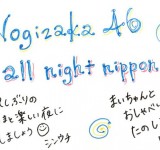 Nogizaka 46
all night nippon
しぶりの
まいちゃんと
と楽しい夜に
おしゃべ
しましょう
たのし
シンウチ